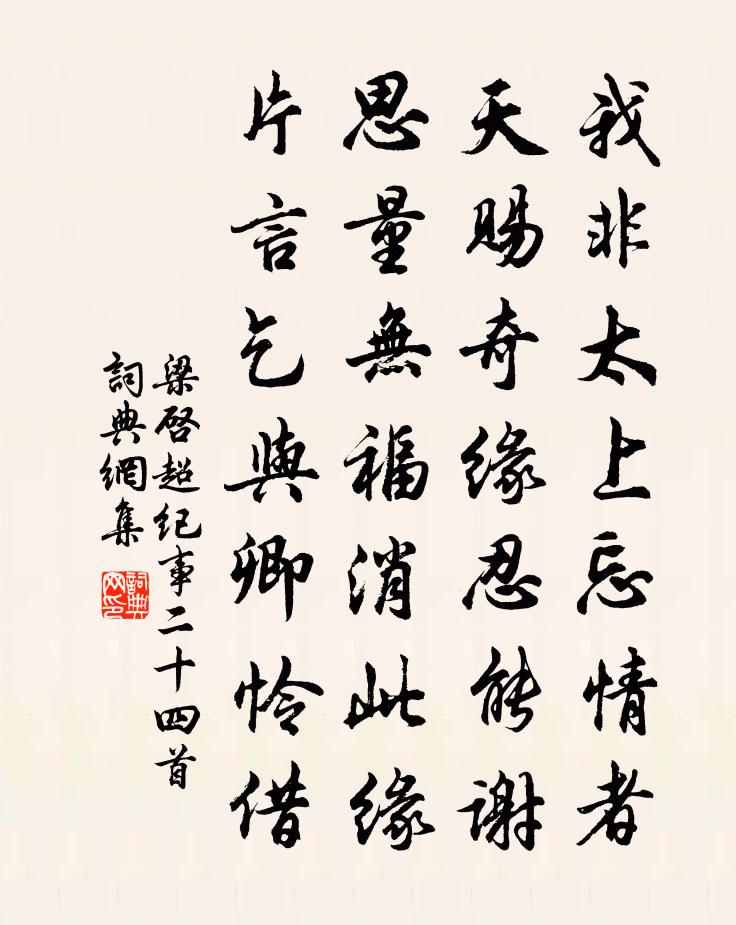 我非太上忘情者
天賜奇緣忍能謝
思量無福消此緣
片言乞與卿怜借
梁啓超纪事二十四首
詞典網集
詞典
网印